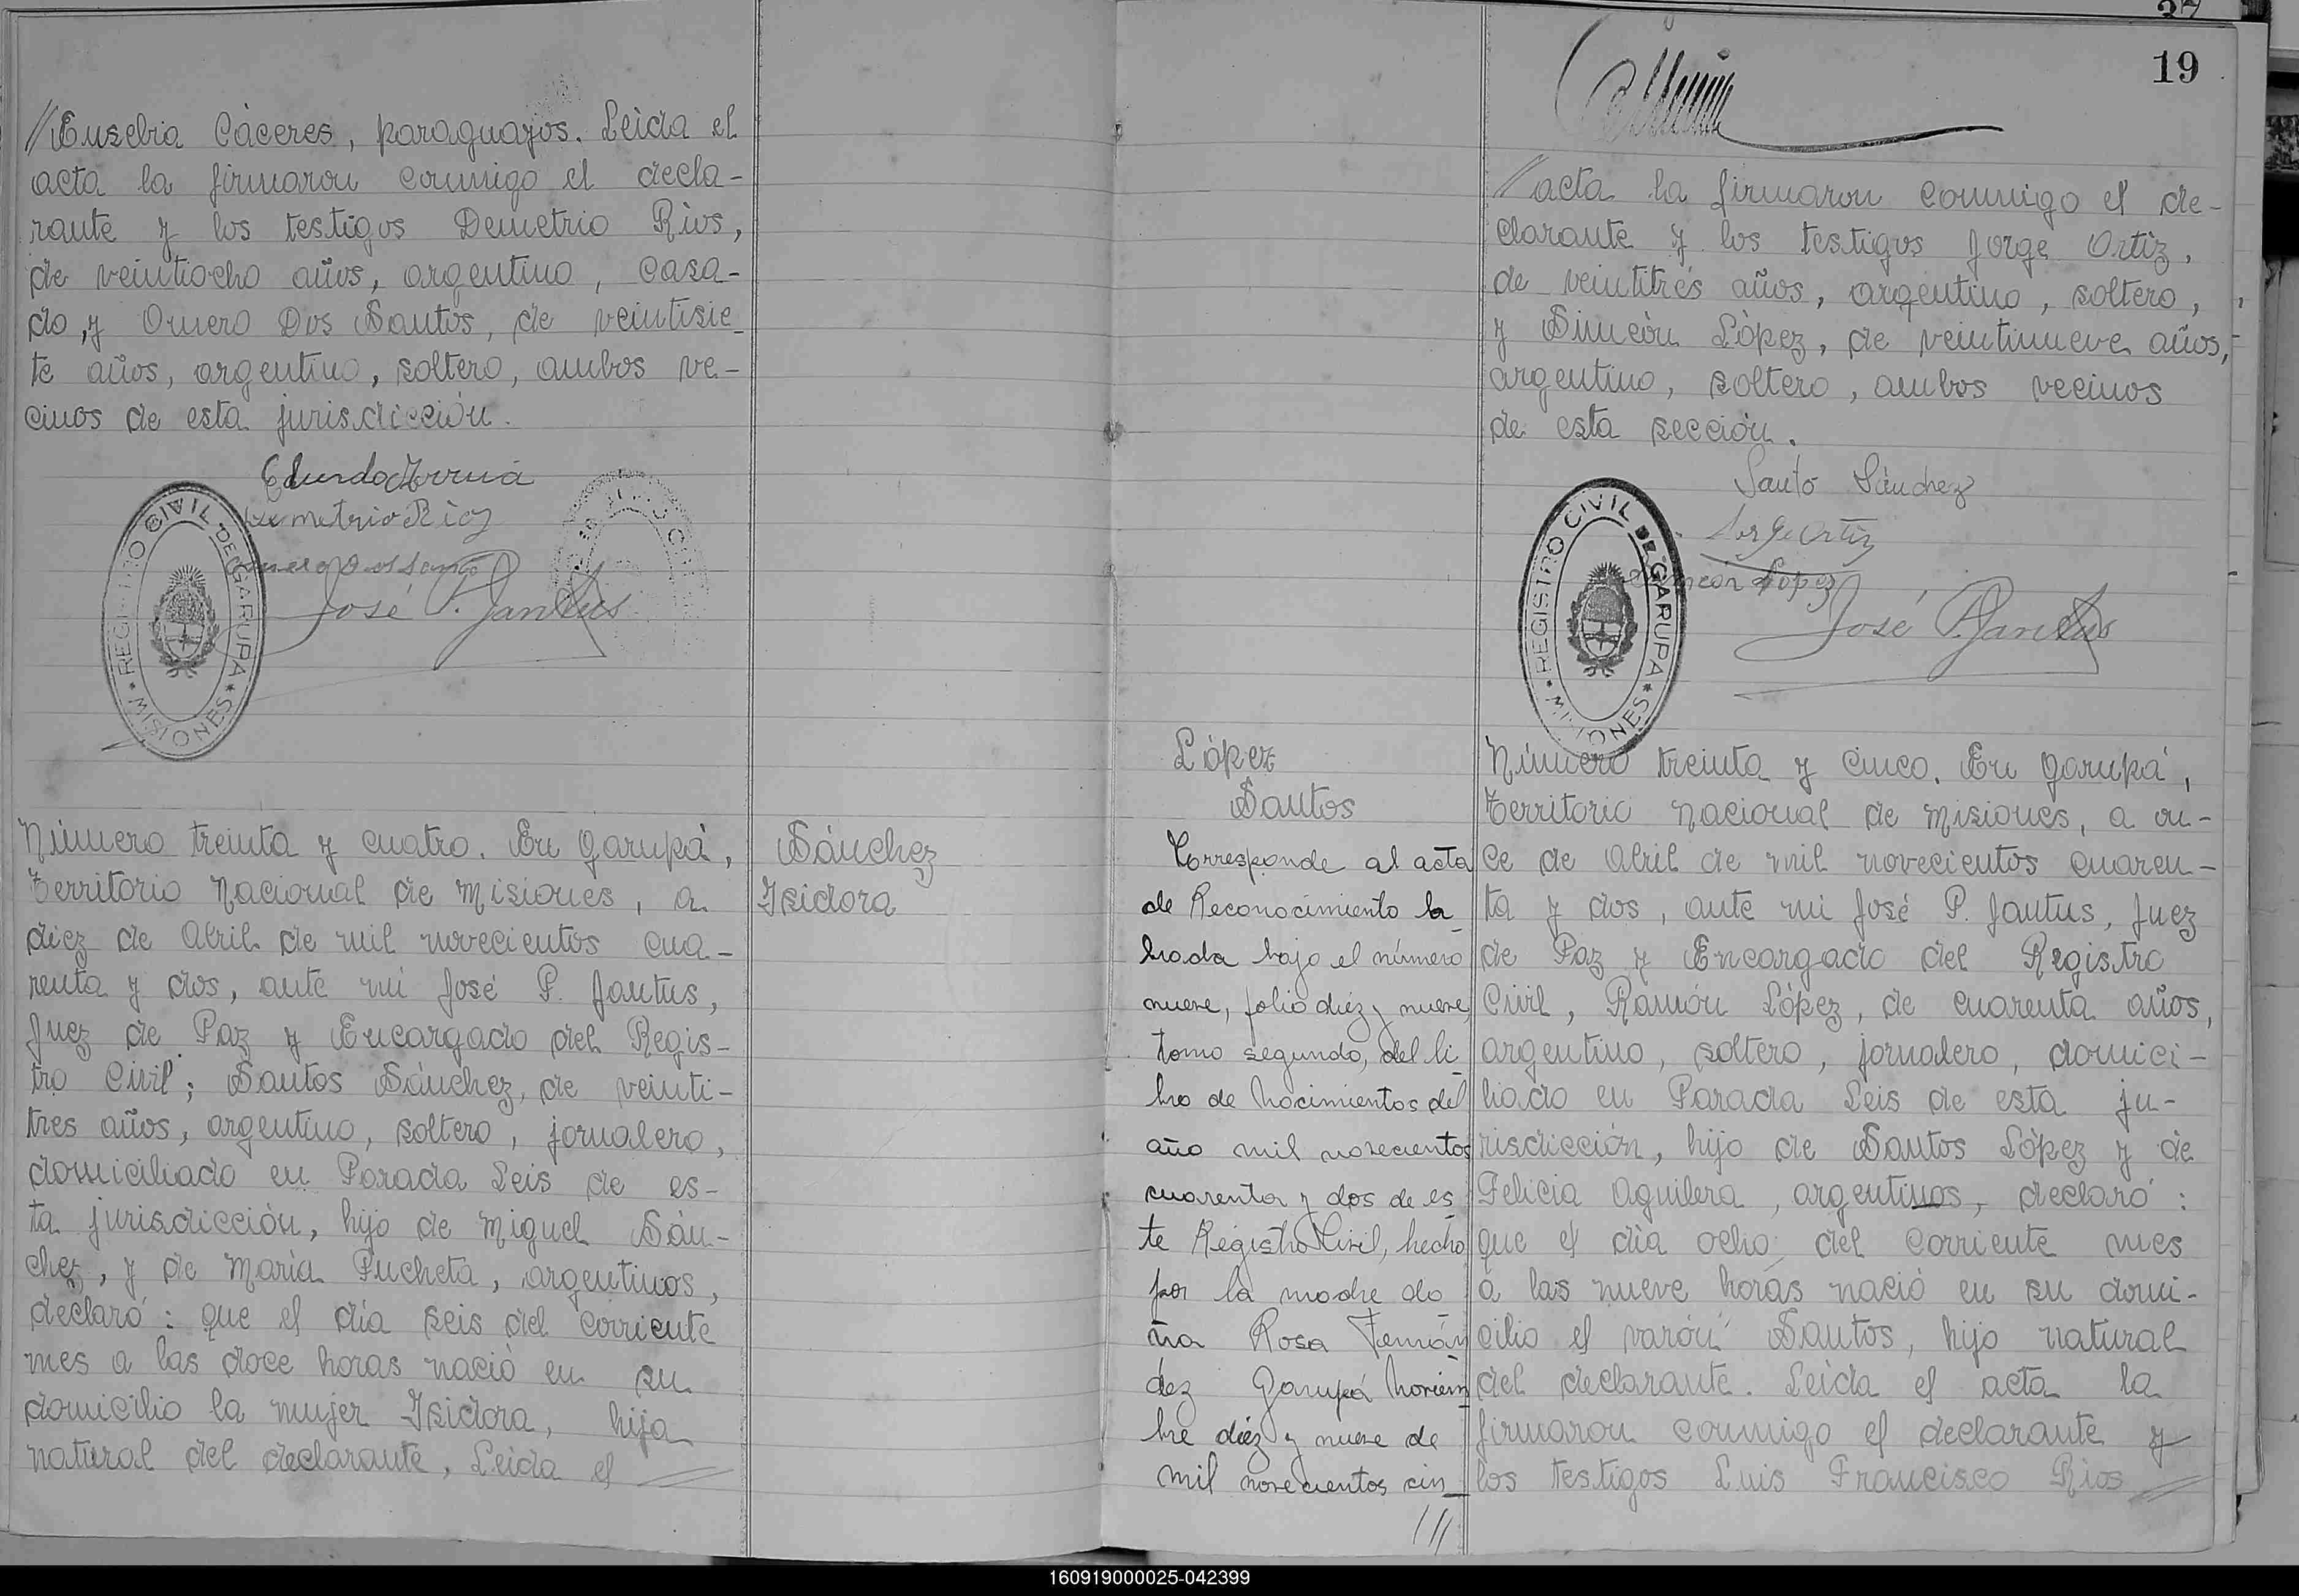 //Eusebia Cáceres, paraguayos. Leida el
acta la firmaron conmigo el decla-
rante y los testigos Demetrio Rios,
de veintiocho años, argentino, casa-
do, y Omero Dos Santos, de veintisie-
te años, argentino, soltero, ambos ve-
cinos de esta jurisdicción.
Demetrio Rios
Omero Dos Santos
José P. Jantus
REGISTRO CIVIL DE GARUPA
* MISIONES *
Número treinta y cuatro. En Garupá,
Territorio Nacional de Misiones, a
diez de Abril de mil novecientos cua-
renta y dos, ante mi José P. Jantus,
Juez de Paz y Encargado del Regis-
tro Civil; Santos Sánchez, de veinti-
tres años, argentino, soltero, jornalero,
domiciliado en Parada Leis de es-
ta jurisdicción, hijo de Miguel Sán-
chez, y de María Pucheta, argentinos,
declaró: que el día seis del corriente
mes a las doce horas nació en su
domicilio la mujer Isidora, hija
natural del declarante. Leida el
Sánchez
Isidora
19
//acta la firmaron conmigo el de-
clarante y los testigos Jorge Ortiz,
de veintitrés años, argentino, soltero,
y Simeón López, de veintinueve años,
argentino, soltero, ambos vecinos
de esta sección.
Santo Sánchez
Jorge Ortiz
Simeón López
José P. Jantus
REGISTRO CIVIL DE GARUPA
* MISIONES *
López
Santos
Corresponde al acta
de Reconocimiento la-
brada bajo el número
nueve, folio diez y nueve,
tomo segundo, del li-
bro de Nacimientos del
año mil novecientos
cuarenta y dos de es-
te Registro Civil, hecho
por la madre do
ña Rosa Fernán
dez Garupá Noviem-
bre diéz y nueve de
mil novecientos cin-
///
Número treinta y cinco. En Garupá,
Territorio Nacional de Misiones, a on-
ce de Abril de mil novecientos cuaren-
ta y dos, ante mi José P. Jantus, Juez
de Paz y Encargado del Registro
Civil, Ramón López, de cuarenta años,
argentino, soltero, jornalero, domici-
liado en Parada Leis de esta ju-
risdicción, hijo de Santos López y de
Felicia Aguilera, argentinos, declaró:
que el día ocho del corriente mes
a las nueve horas nació en su domi-
cilio el varón Santos, hijo natural
del declarante. Leida el acta la
firmaron conmigo el declarante y
los testigos Luis Francisco Rios
160919000025-042399